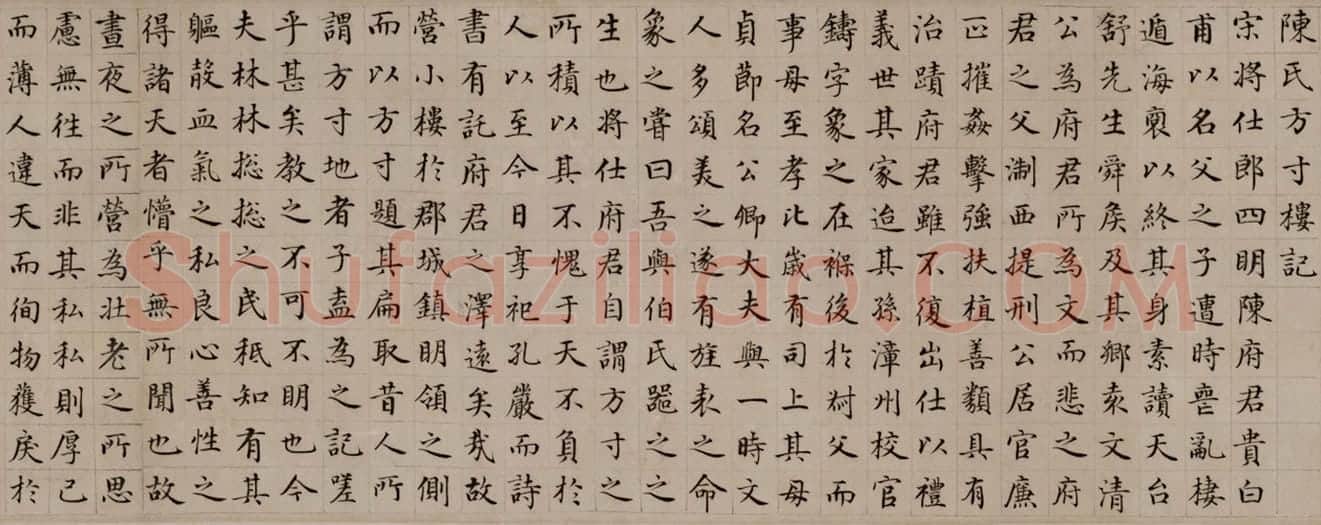 陳氏方寸樓記
宋將仕郎四明陳府君貴白
甫以名父之子遭時喪亂棲
遁海裔以終其身素讀天台
舒先生舜矦及其鄉袁文清
公為府君所為文而悲之府
君之父淛西提刑公居官廉
正摧姦擊強扶植善類具有
治蹟府君雖不復出仕以禮
義世其家迨其孫漳州校官
鑄字象之在褓後於叔父而
事母至孝比歲有司上其母
貞節名公卿大夫與一時文
人多頌美之遂有旌表之命
象之嘗曰吾與伯氏噐之之
生也將仕府君自謂方寸之
所積以其不愧于天不負於
人以至今日享祀孔嚴而詩
書有託府君之澤遠矣哉故
營小樓於郡城鎮明領之側
而以方寸題其扁取昔人所
謂方寸地者子盍為之記嗟
乎甚矣教之不可不明也今
夫林林揔揔之民秖知有其
軀殼血氣之私良心善性之
得諸天者懵乎無所聞也故
晝夜之所營為壯老之所思
慮無往而非其私私則厚己
而薄人違天而徇物獲戾於
Shufaziliao.COM